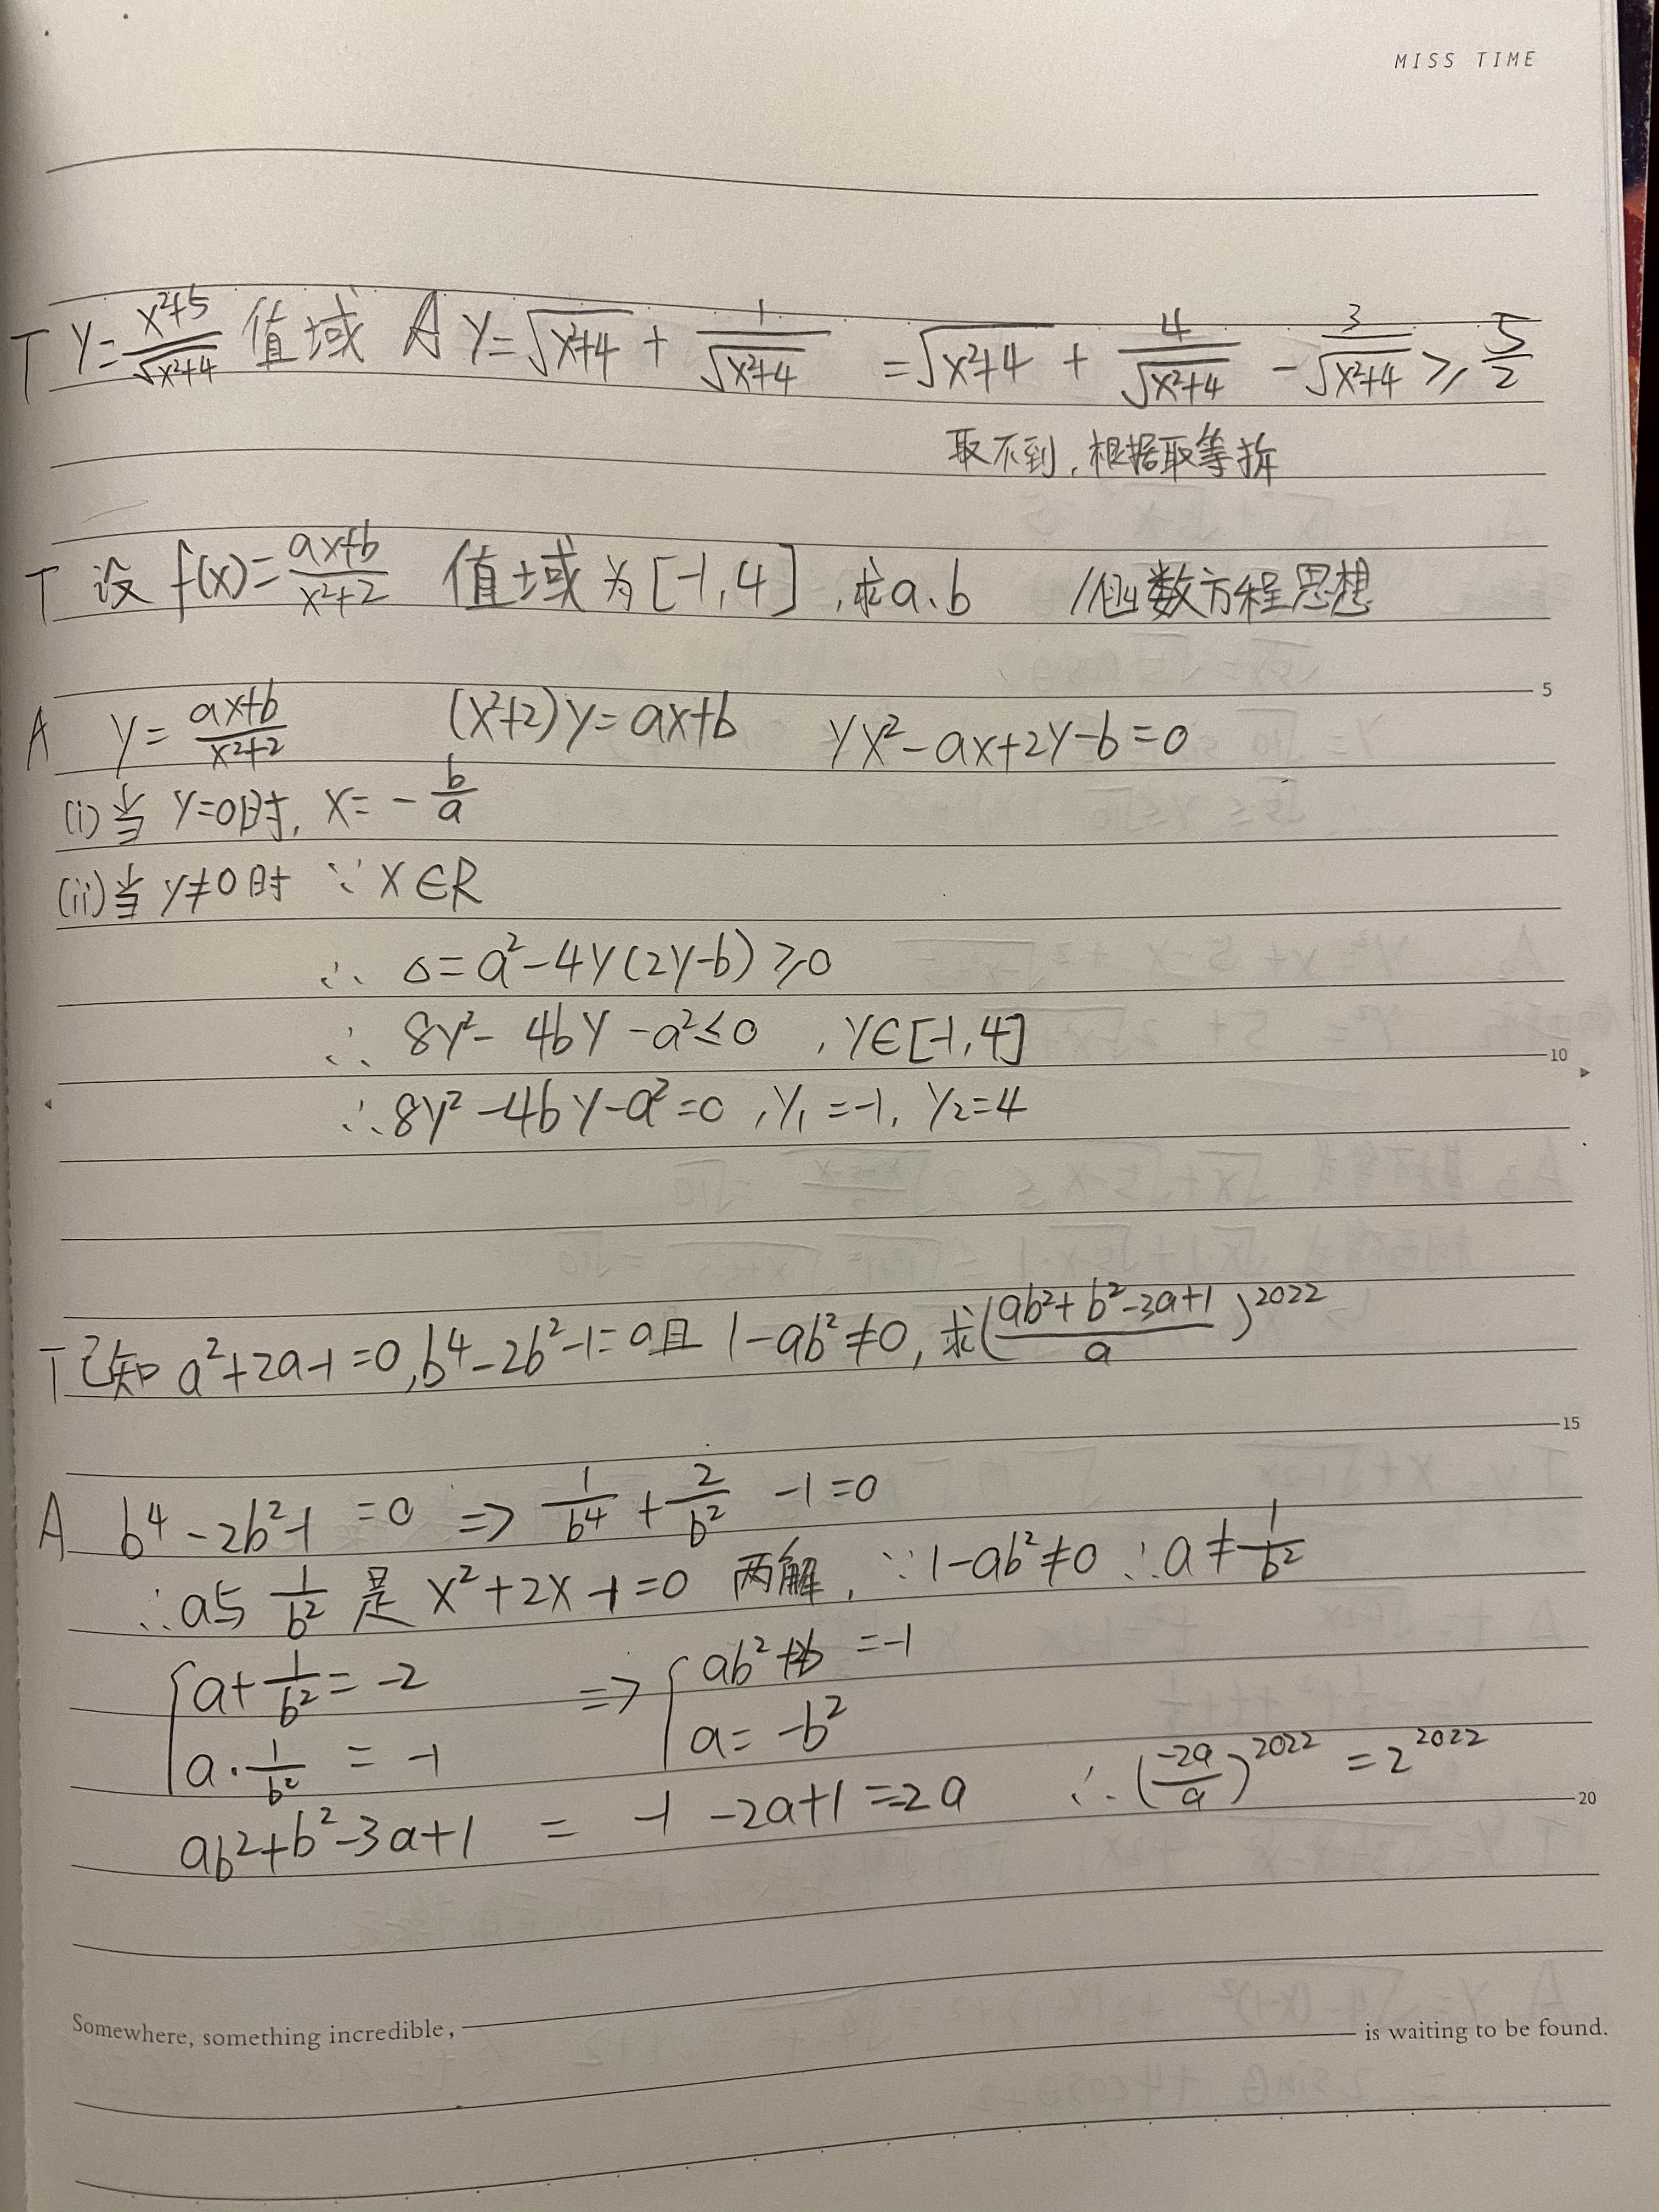 MISS TIME
T y=\frac{x²+5}{\sqrt{x²+4}} 值域 A y=\sqrt{x²+4} + \frac{1}{\sqrt{x²+4}} = \sqrt{x²+4} + \frac{4}{\sqrt{x²+4}} - \frac{3}{\sqrt{x²+4}} ≥ \frac{5}{2}
取不到,根据取等拆
T 设 f(x)=\frac{ax+b}{x²+2} 值域为[-1,4],求a.b //函数方程思想
5
A y=\frac{ax+b}{x²+2} (x²+2)y=ax+b yx²-ax+2y-b=0
(i)当y=0时, x=-\frac{b}{a}
(ii)当y≠0时 ∵x∈R
∴ Δ=a²-4y(2y-b)≥0
∴ 8y²-4by-a²≤0, y∈[-1,4]
10
∴8y²-4by-a²=0, y₁=-1, y₂=4
T 已知a²+2a-1=0, b⁴-2b²-1=0且1-ab²≠0, 求(\frac{ab²+b²-3a+1}{a})²⁰²²
15
A b⁴-2b²-1=0 ⇒ \frac{1}{b⁴}+\frac{2}{b²}-1=0
∴a与\frac{1}{b²}是x²+2x-1=0两解, ∵1-ab²≠0 ∴a≠\frac{1}{b²}
{a+\frac{1}{b²}=-2 ⇒ {ab²+1=-
{a·\frac{1}{b²}=-1 {a=-b²
20
ab²+b²-3a+1 = -1-2a+1=-2a ∴(\frac{-2a}{a})²⁰²²=2²⁰²²
Somewhere, something incredible, is waiting to be found.